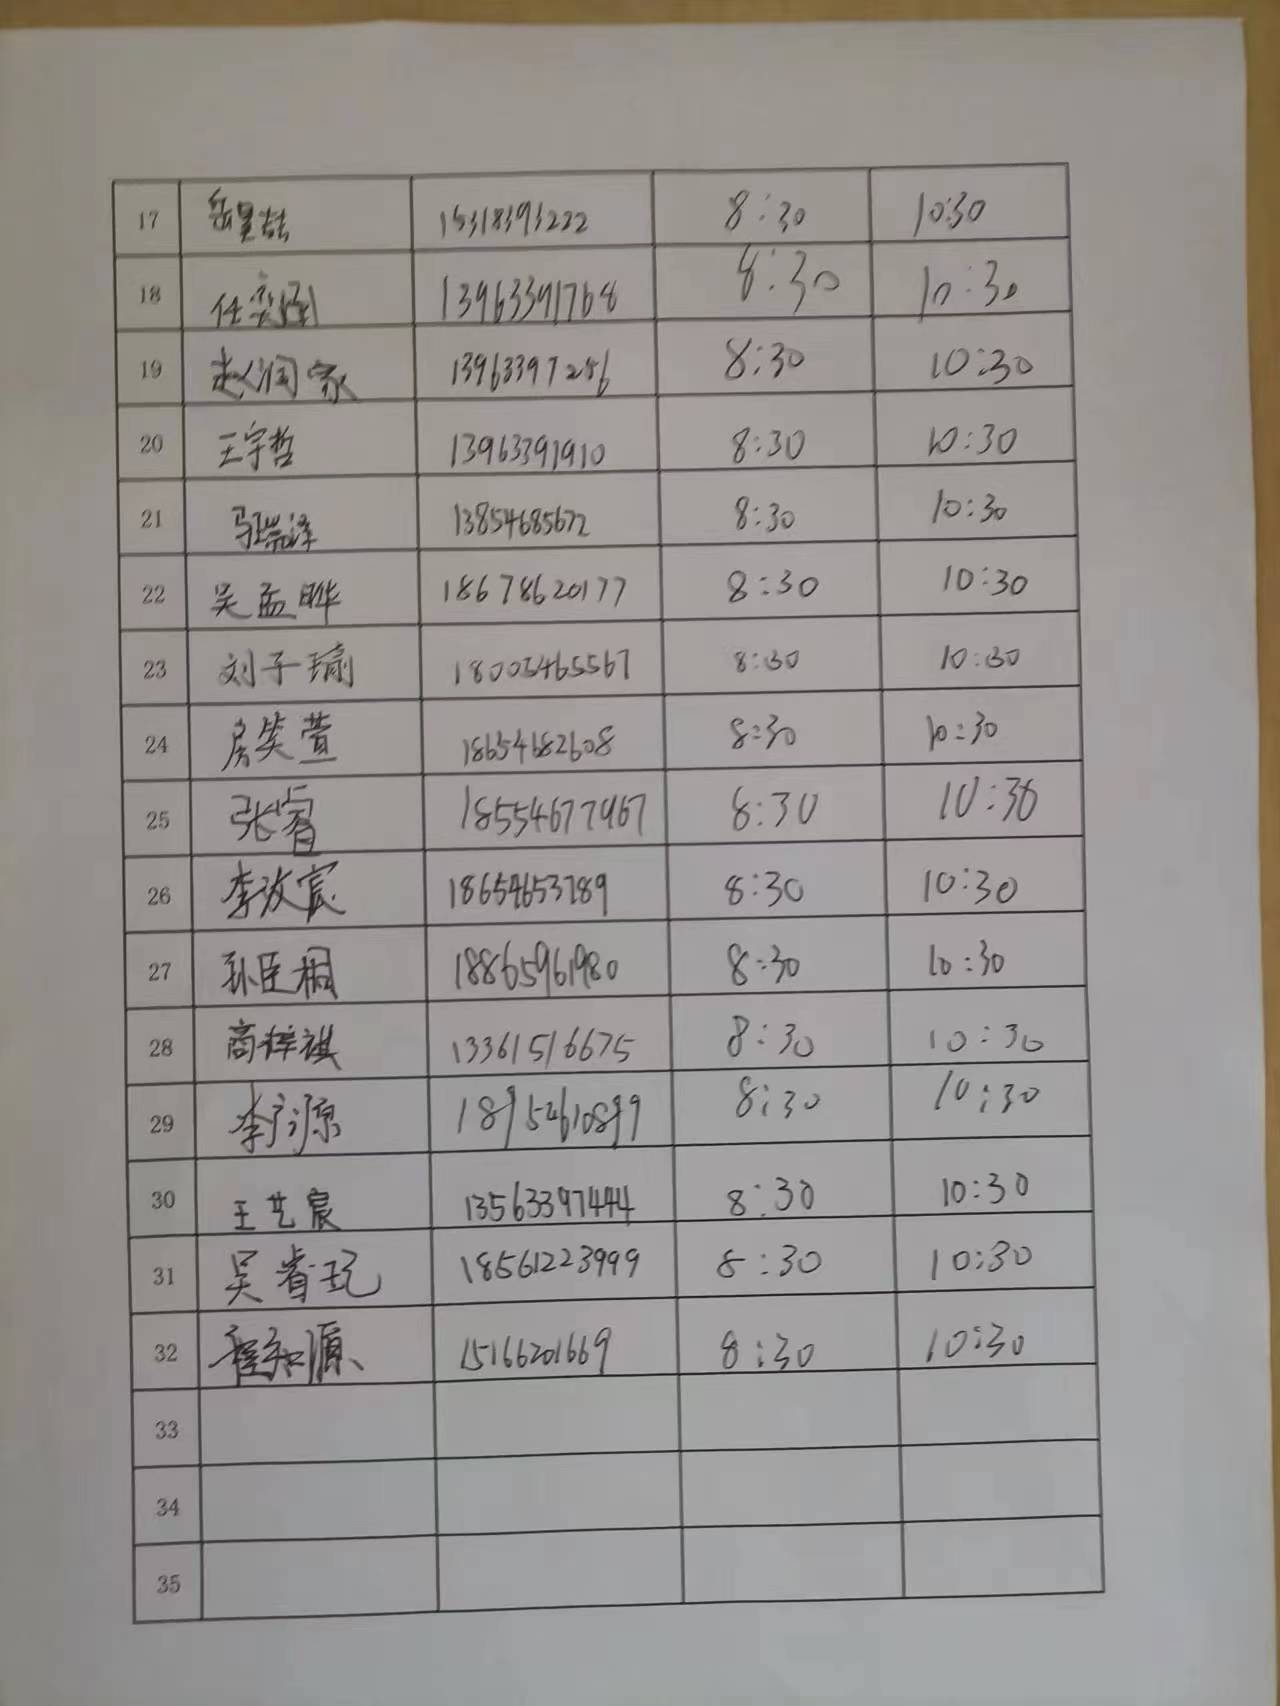 17 15318393222 8:30 10:30
18 任 13963391768 8:30 10:30
19 赵润家 13963397256 8:30 10:30
20 王宇哲 13963391910 8:30 10:30
21 马瑞泽 13854685672 8:30 10:30
22 吴孟晔 18678620177 8:30 10:30
23 刘子瑜 18005465567 8:30 10:30
24 房笑萱 18654682608 8:30 10:30
25 张睿 18554677967 8:30 10:30
26 李汶宸 18654653789 8:30 10:30
27 孙臣桐 18865961980 8:30 10:30
28 商梓祺 13361516675 8:30 10:30
29 李源 18954610899 8:30 10:30
30 王艺宸 13563397444 8:30 10:30
31 吴睿玘 18561223999 8:30 10:30
32 程知源 15166201669 8:30 10:30
33
34
35